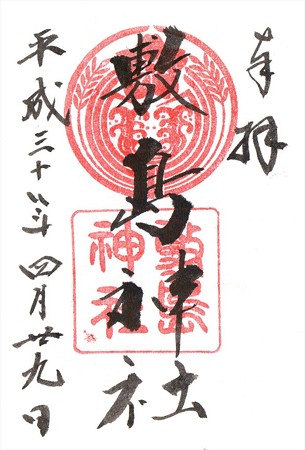 奉拝
敷島神社
敷島
神社
平成三十一年四月廿九日